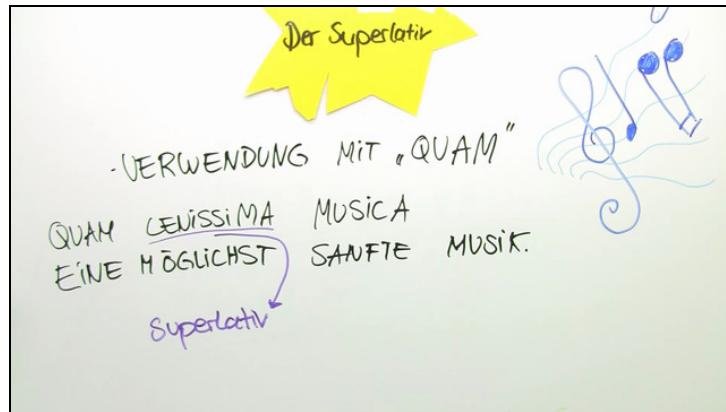 Der Superlativ
- VERWENDUNG MIT „QUAM"
QUAM LENISSIMA MUSICA
EINE MÖGLICHST SANFTE MUSIK.
Superlativ